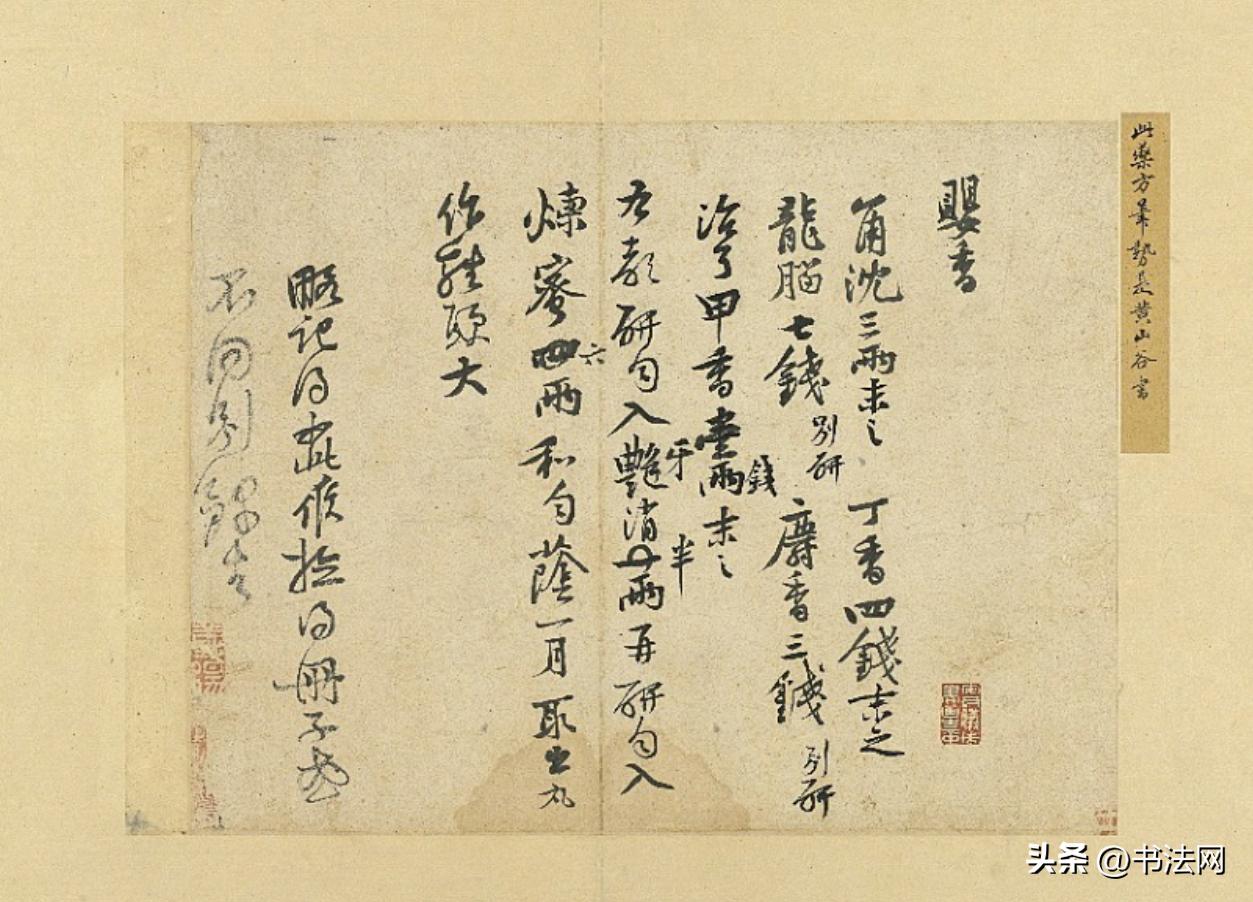 此藥方筆勢是黃山谷書
嬰香
角沈三兩末之 丁香四錢末之
龍腦七錢別研 麝香三錢別研
治了甲香壹兩錢末之
右都研勻入艷消半兩再研勻入
牙 半
煉蜜四兩和勻蔭一月取出丸
六
作雞頭大
略記得此候檢得冊子或
不同別錄去
头条 @书法网